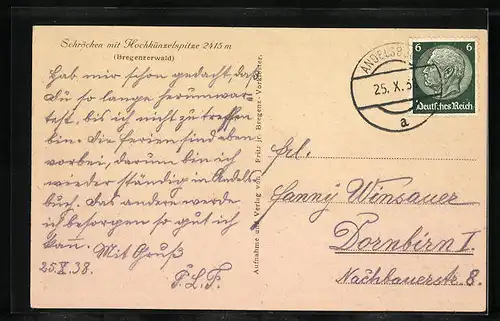 Schröcken mit Hochkünzelspitze 2415 m
(Bregenzerwald)
Hab mir schon gedacht, daß
Du so lange herumwar-
test, bis ich nicht zu treffen
bin. Die Ferien sind eben
vorbei, darum bin ich
wieder ständig in Andels-
buch. Das andere werde
ich besorgen so gut ich
kann. Mit Gruß
25.X.38. P.L.F.
Aufnahme und Verlag von Fritz jr. Bregenz-Vorkloster.
25. X. 3
a
6 6
Deutsches Reich
Frl.
Fanny Winsauer
Dornbirn I.
Nachbauerstr. 8.